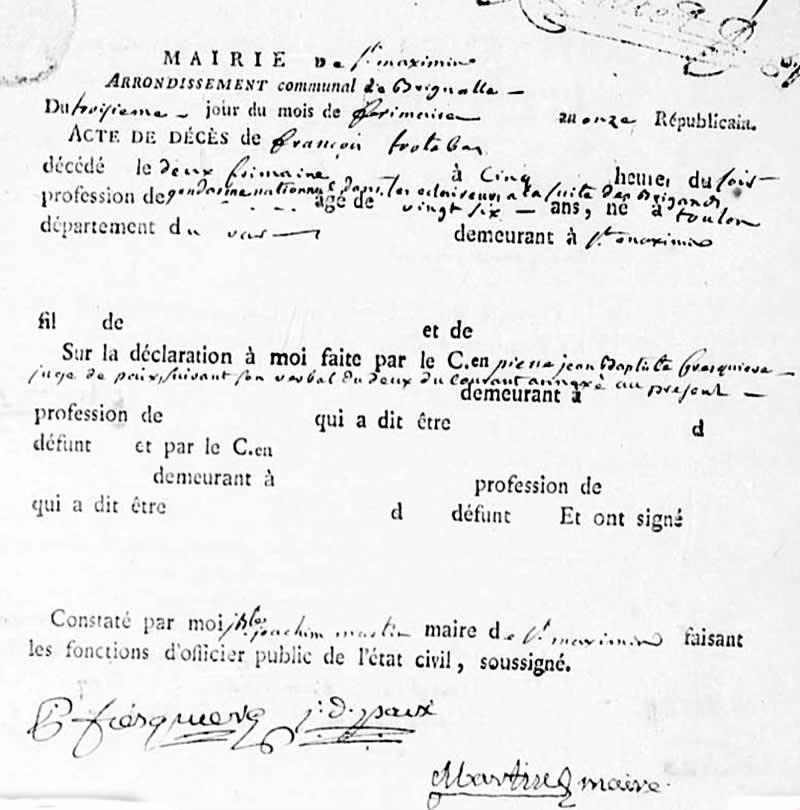 MAIRIE De St. maximin
ARRONDISSEMENT communal de Brignolle —
Du troisieme — jour du mois de frimaire an onze Républicain.
ACTE DE DÉCÈS de françois trotebas
décédé le deux frimaire à Cinq heures du soir
profession de gendarme nationnal dans les eclaireurs a la suite des Brigands
âgé de vingt six — ans, né à toulon
département du var — demeurant à St. maximin
fil de et de
Sur la déclaration à moi faite par le C.en pierre jean Baptiste fresquiere —
juge de paix, suivant son verbal du deux du courant annexé au present —
demeurant à
profession de qui a dit être d
défunt et par le C.en
demeurant à profession de
qui a dit être d défunt Et ont signé
Constaté par moi joachim martin maire de St. maximin faisant
les fonctions d'officier public de l'état civil, soussigné.
j. d. paix
Martin maire